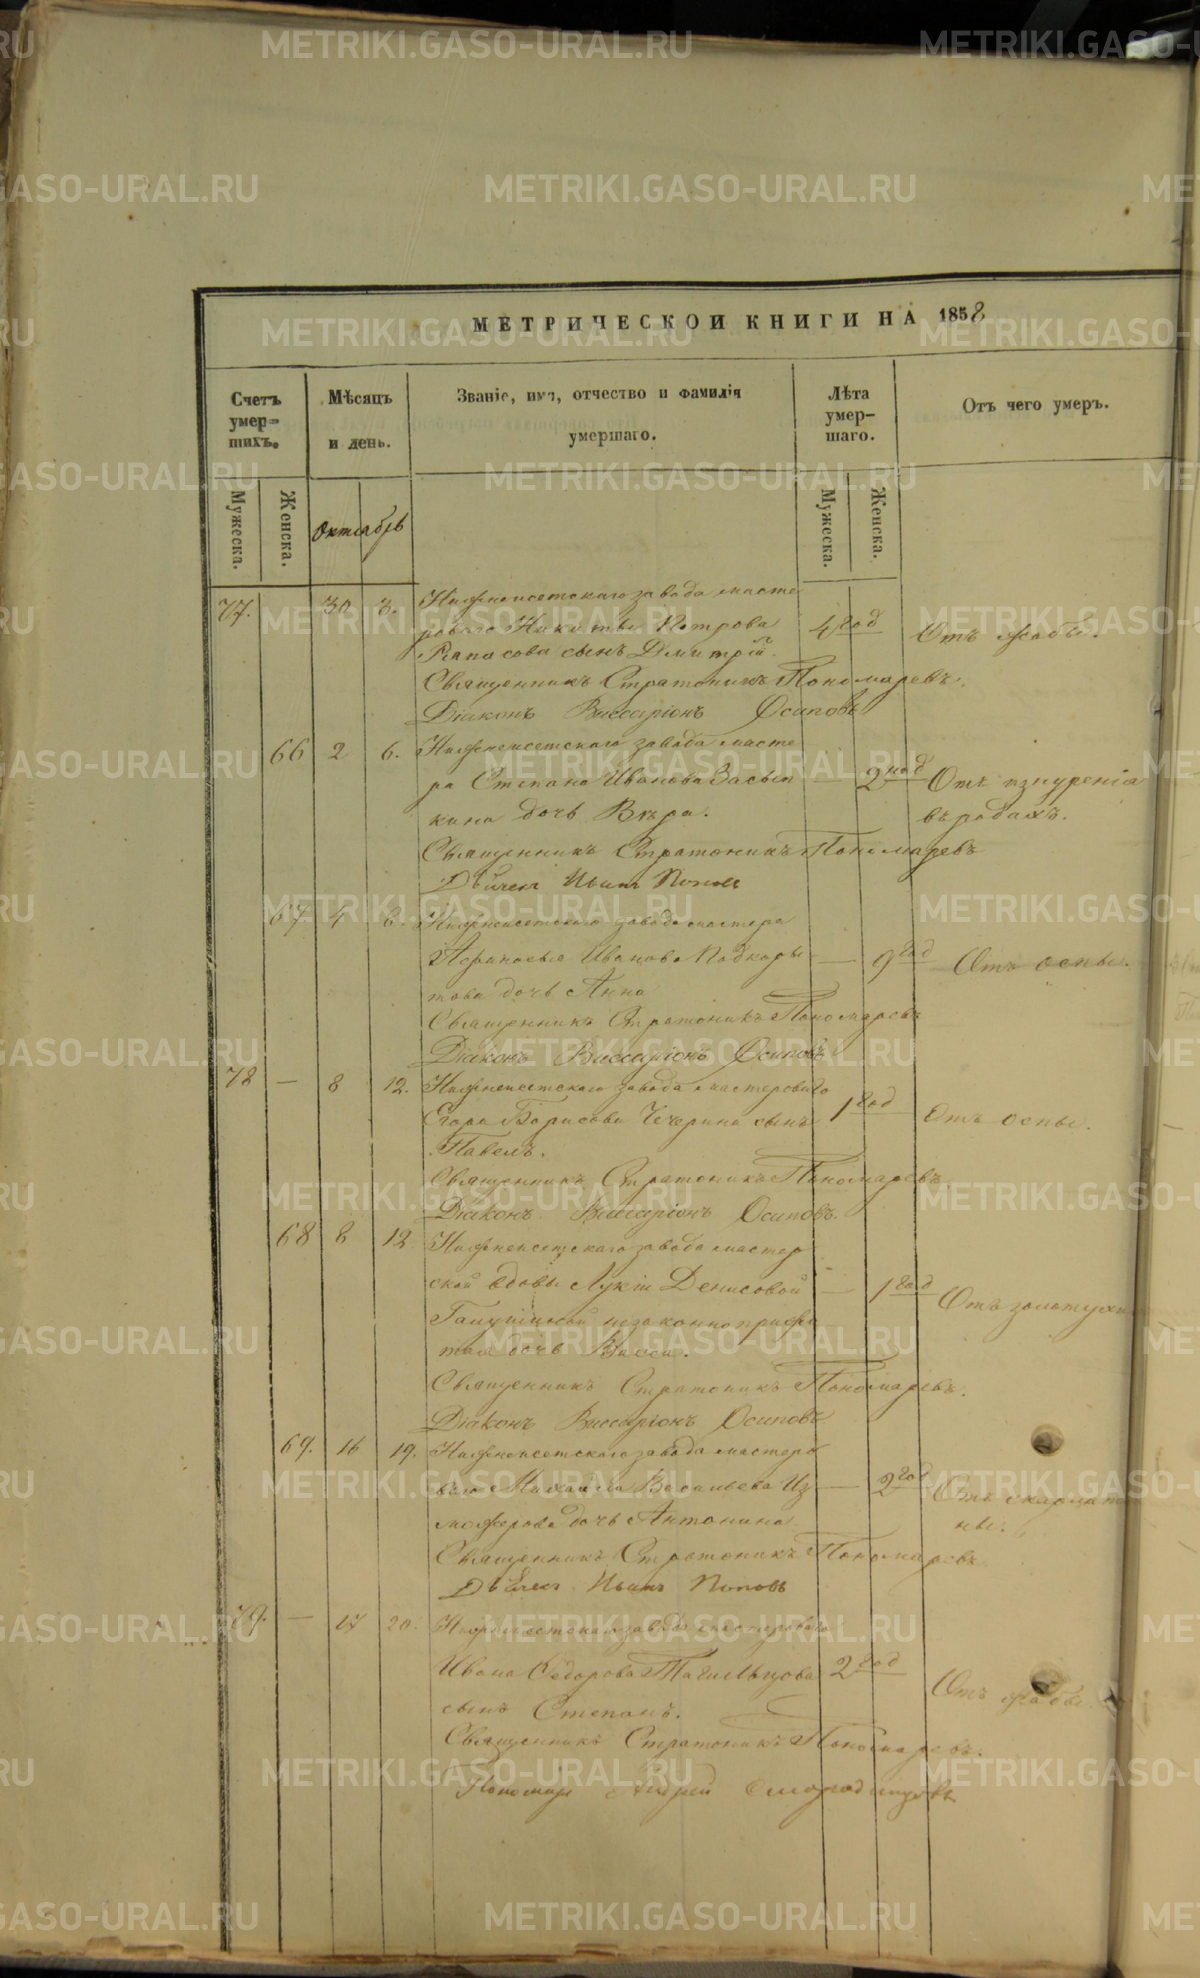 МЕТРИЧЕСКОЙ КНИГИ НА 1858
Счетъ умер-
шихъ.
Мѣсяцъ
и день.
Званіе, имя, отчество и фамилія
умершаго.
Лѣта
умер-
шаго.
Отъ чего умеръ.
Мужеска.
Женска.
Октябрь
Мужеска.
Женска.
77. 30 3. Нижнеисетскаго завода масте
роваго Никиты Петрова 4 год Отъ жабы.
сынъ Дмитрій.
Священникъ Стратоникъ Пономаревъ.
Діаконъ Виссаріонъ Осиповъ
66 2 6. Нижнеисетскаго завода масте
ра Степана Иванова Засып — 2 Отъ изнуренія
кина дочь Вѣра. въ родахъ.
Священникъ Стратоникъ Пономаревъ
Иванъ Поповъ
67. 4 6. Нижнеисетскаго завода мастера
Афанасья Иванова Подкоры — 9 год Отъ оспы.
това дочь Анна
Священникъ Стратоникъ Пономаревъ
Діаконъ Виссаріонъ Осиповъ
78 — 8 12. Нижнеисетскаго завода мастероваго
Егора Борисова Чечерина сынъ 1 год Отъ оспы.
Павелъ.
Священникъ Стратоникъ Пономаревъ.
Діаконъ Виссаріонъ Осиповъ.
68 8 12 Нижнеисетскаго завода мастер
ской вдовы Лукіи Денисовой — 1 год Отъ золотухи
незаконноприжи
тая дочь Васса.
Священникъ Стратоникъ Пономаревъ.
Діаконъ Виссаріонъ Осиповъ
69. 16 19. Нижнеисетскаго завода мастеро
ваго Михаила Васильева Из — 2 год Отъ скарлати
можерова дочь Антонина ны.
Священникъ Стратоникъ Пономаревъ
Иванъ Поповъ
79. — 17 20. Нижнеисетскаго завода мастероваго
Ивана Федорова Тагильцова 2 год Отъ жабы.
сынъ Степанъ.
Священникъ Стратоникъ Пономаревъ.
Пономарь Андрей Смородинцовъ
METRIKI.GASO-URAL.RU